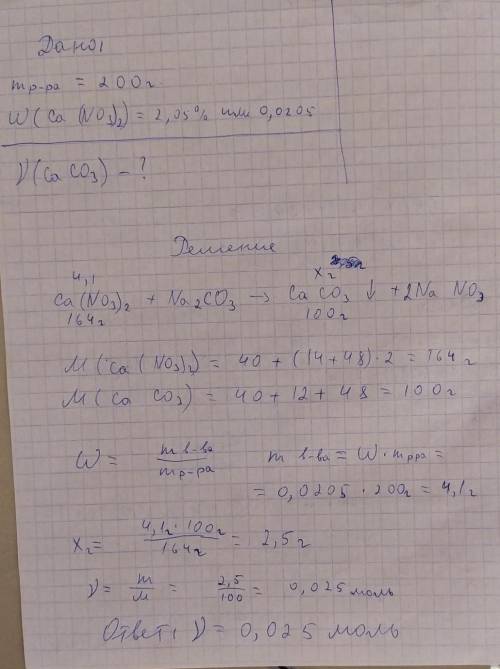 Дано:
mр-ра = 200г
W(Ca(NO3)2) = 2,05% или 0,0205
ν(CaCO3) - ?
Решение
4,1 xг
Ca(NO3)2 + Na2CO3 → CaCO3↓ + 2NaNO3
164г 100г
M(Ca(NO3)2) = 40 + (14 + 48)·2 = 164г
M(CaCO3) = 40 + 12 + 48 = 100г
W = m в-ва / mр-ра m в-ва = W · mрра =
= 0,0205 · 200г = 4,1г
xг = 4,1г · 100г / 164г = 2,5г
ν = m / M = 2,5 / 100 = 0,025 моль
Ответ: ν = 0,025 моль